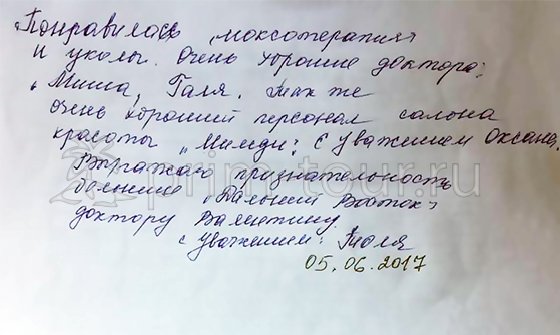 Понравилась „моксотерапия"
и уколы. Очень хорошие доктора:
„Миша, Галя. Так же
очень хороший персонал салона
красоты „Мимди". С уважением Оксана,
Выражаю признательность
больнице „Дальний Восток"
доктору Валентину.
с уважением: Толя
05.06.2017
prim-tour.ru